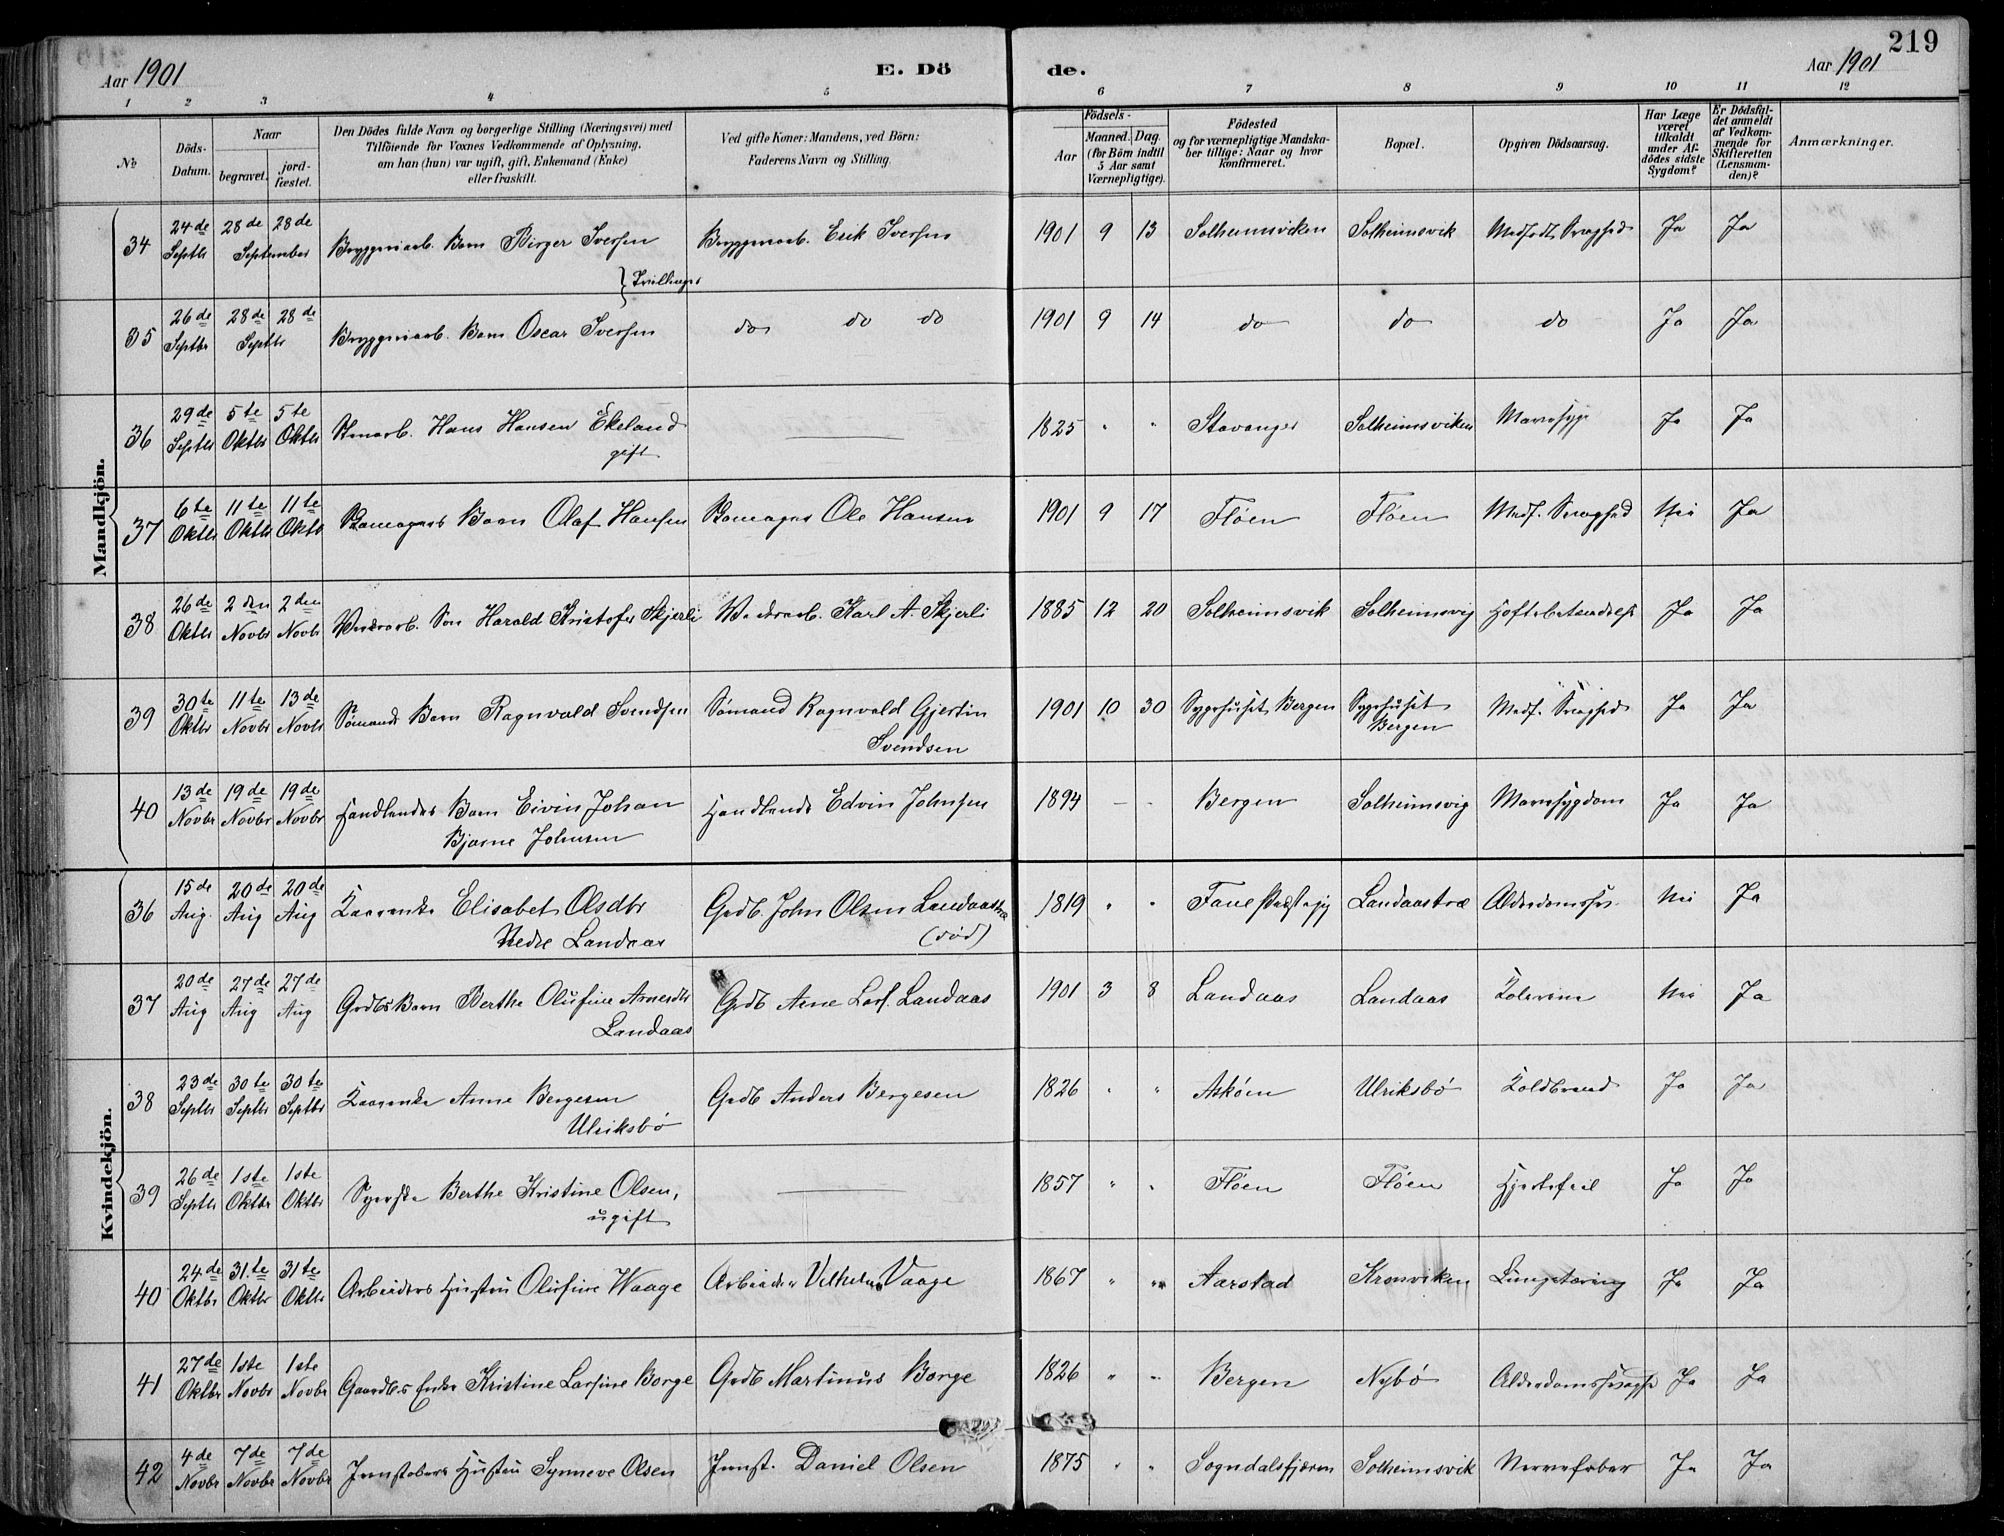 219
Aar 1901 E. Dö de. Aar 1901
1 2 3 4 5 6 7 8 9 10 11 12
№ Döds-Datum. Naar begravet. jordfæstet. Den Dödes fulde Navn og borgerlige Stilling (Næringsvei) med Tilföiende for Voxnes Vedkommende af Oplysning, om han (hun) var ugift, gift, Enkemand (Enke) eller fraskilt. Ved gifte Koner: Mandens, ved Börn: Faderens Navn og Stilling. Födsels- Aar Maaned. Dag. (for Börn indtil 5 Aar samt Værnepligtige). Födested og for værnepligtige Mandskaber tillige: Naar og hvor konfirmeret. Bopæl. Opgiven Dödsaarsag. Har Læge været tilkaldt under Afdödes sidste Sygdom? Er Dödsfaldet anmeldt af Vedkommende for Skifteretten (Lensmanden)? Anmærkninger.
Mandkjön.
34 24de Septbr 28de 28de September Bryggeriarb. Barn Birger Iversen Bryggeriarb. Erik Iversen 1901 9 13 Solheimsviken Solheimsvik Medfødt Svaghed Ja Ja
} Tvillinger
35 26de Septbr 28de 28de Septbr Bryggeriarb. Barn Oscar Iversen do do do 1901 9 14 do do do Ja Ja
36 29de Septbr 5te Oktbr 5te Oktbr Hans Hansen Ekeland 1825 " " Stavanger Solheimsviken Mavesyge Ja Ja
gift
37 6te Oktbr 11te Oktbr 11te Oktb Barn Olaf Hansen Ole Hansen 1901 9 17 Fløen Fløen Medf. Svaghed Nei Ja
38 26de Oktbr 2den Novbr 2den Novbr Værksarb. Søn Harald Kristofer Skjerli Værksarb. Karl A. Skjerli 1885 12 20 Solheimsvik Solheimsvig Hoftebetændelse Ja Ja
39 30te Oktbr 11te Novbr 13de Novbr Sømands Barn Ragnvald Svendsen Sømand Ragnvald Gjertin 1901 10 30 Sygehuset Bergen Sygehuset Bergen Medf. Svaghed Ja Ja
Svendsen
40 13de Novbr 19de Novbr 19de Novbr Handlendes Barn Eivin Johan Handlende Edvin Johnsen 1894 – - Bergen Solheimsvig Mavesygdom Ja Ja
Bjarne Johnsen
Kvindekjön.
36 15de Aug. 20de Aug 20de Aug Kaarenke Elisabet Olsdtr Grdb. John Olsen Landaastræ 1819 " " Fane Landaastræ Nei Ja
Nedre Landaas (død)
37 20de Aug 27de Aug 27de Aug Grdbs Barn Berthe Olufine Arnesdtr Grdb Arne Lars. Landaas 1901 3 8 Landaas Landaas Kolerine Nei Ja
Landaas
38 23de Septbr 30te Septbr 30te Septbr Kaarenke Anne Bergesen Grdb Anders Bergesen 1826 " " Askøen Ulriksbø Koldbrand Ja Ja
Ulriksbø
39 26de Septbr 1ste Oktbr 1ste Oktbr Syerske Berthe Kristine Olsen, 1857 " " Fløen Fløen Hjertefeil Ja Ja
ugift
40 24de Oktbr 31.te Oktbr 31te Oktbr Arbeiders Hustru Olufine Waage Arbeider Vilhelm Vaage 1867 " " Aarstad Kronviken Lungetæring Ja Ja
41 27de Oktbr 1ste Novbr 1ste Novbr Gaardbs Enke Kristine Larsine Borge Grdb Martinus Borge 1826 " " Bergen Nybø Alderdomssvaghed Ja Ja
42 4de Novbr 7de Novbr 7de Novbr Jernstøbers Hustru Synneve Olsen Jernst. Daniel Olsen 1875 " " Sogndalsfjæren Solheimsvik Nervefeber Ja Ja